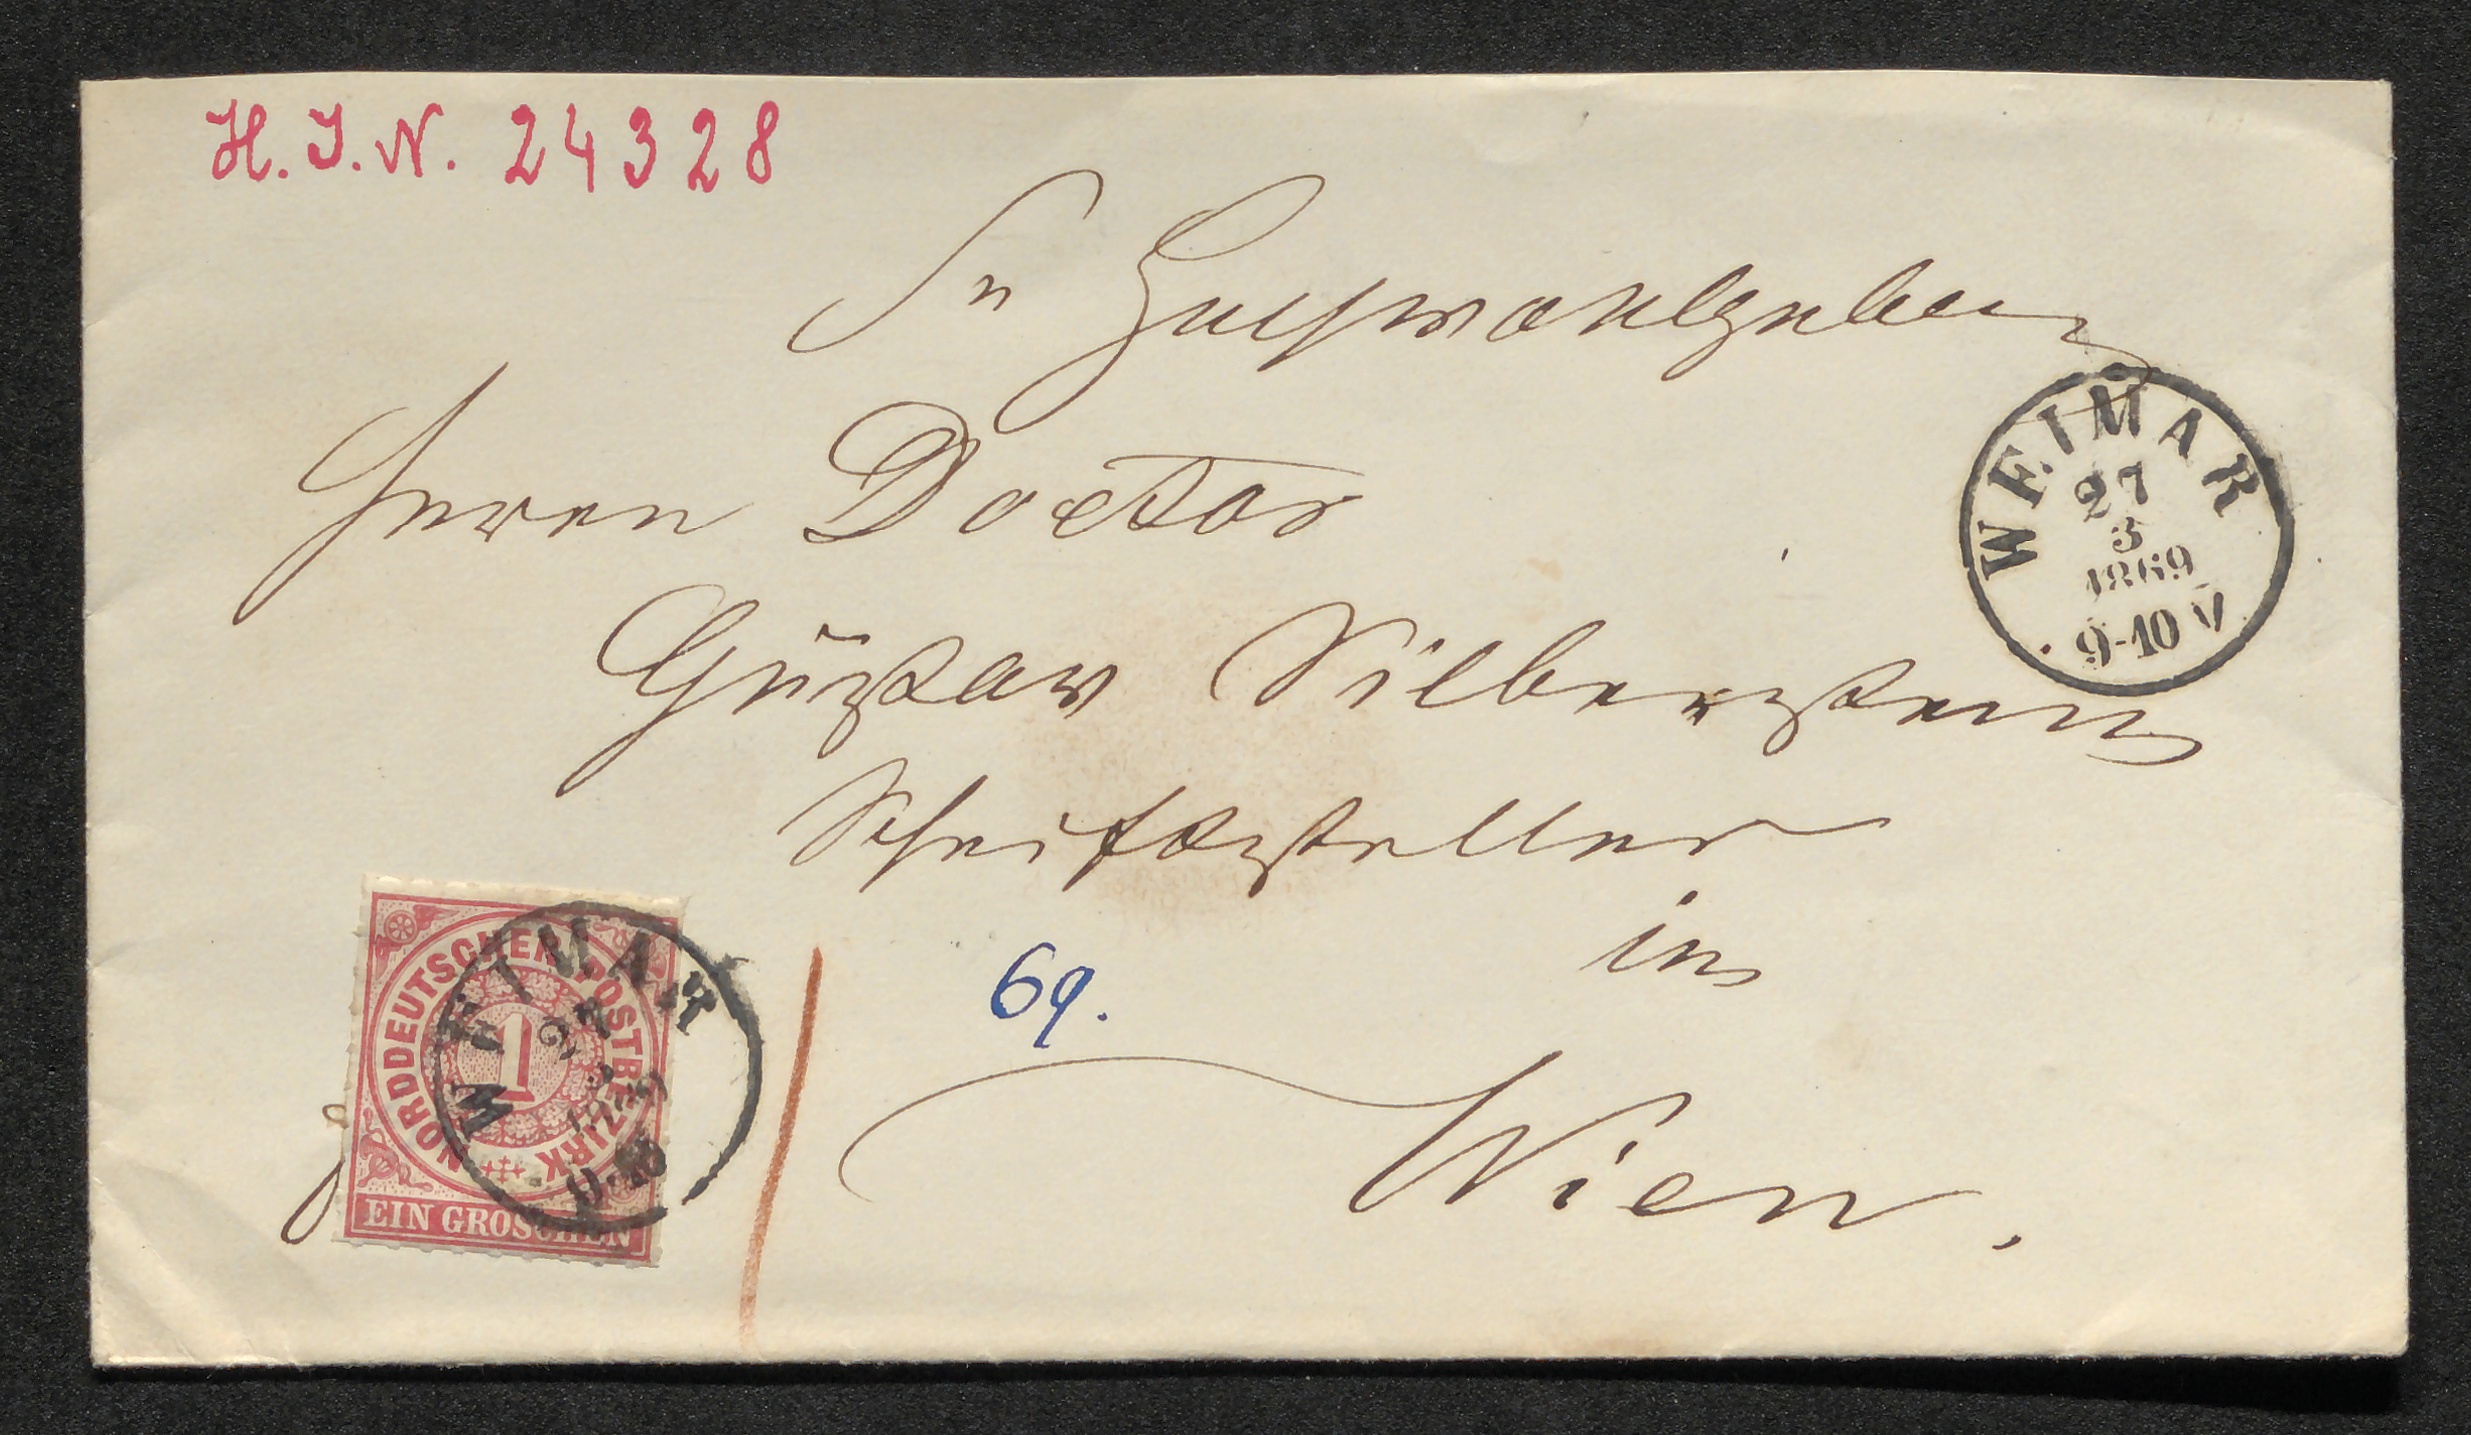 H. I. N. 24328
Sr Hochwohlgeboren
Herrn Doctor
Gustav Silberstein
Schriftsteller
in
Wien.
69.
WEIMAR
27
3
1869
9-10 V.
NORDDEUTSCHER POSTBEZIRK
1
EIN GROSCHEN
WEIMAR
27
3
1869